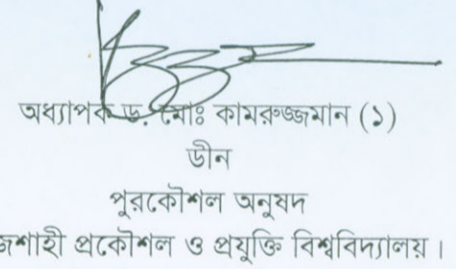 অধ্যাপক ড. মোঃ কামরুজ্জমান (১)
ডীন
পুরকৌশল অনুষদ
জশাহী প্রকৌশল ও প্রযুক্তি বিশ্ববিদ্যালয়।